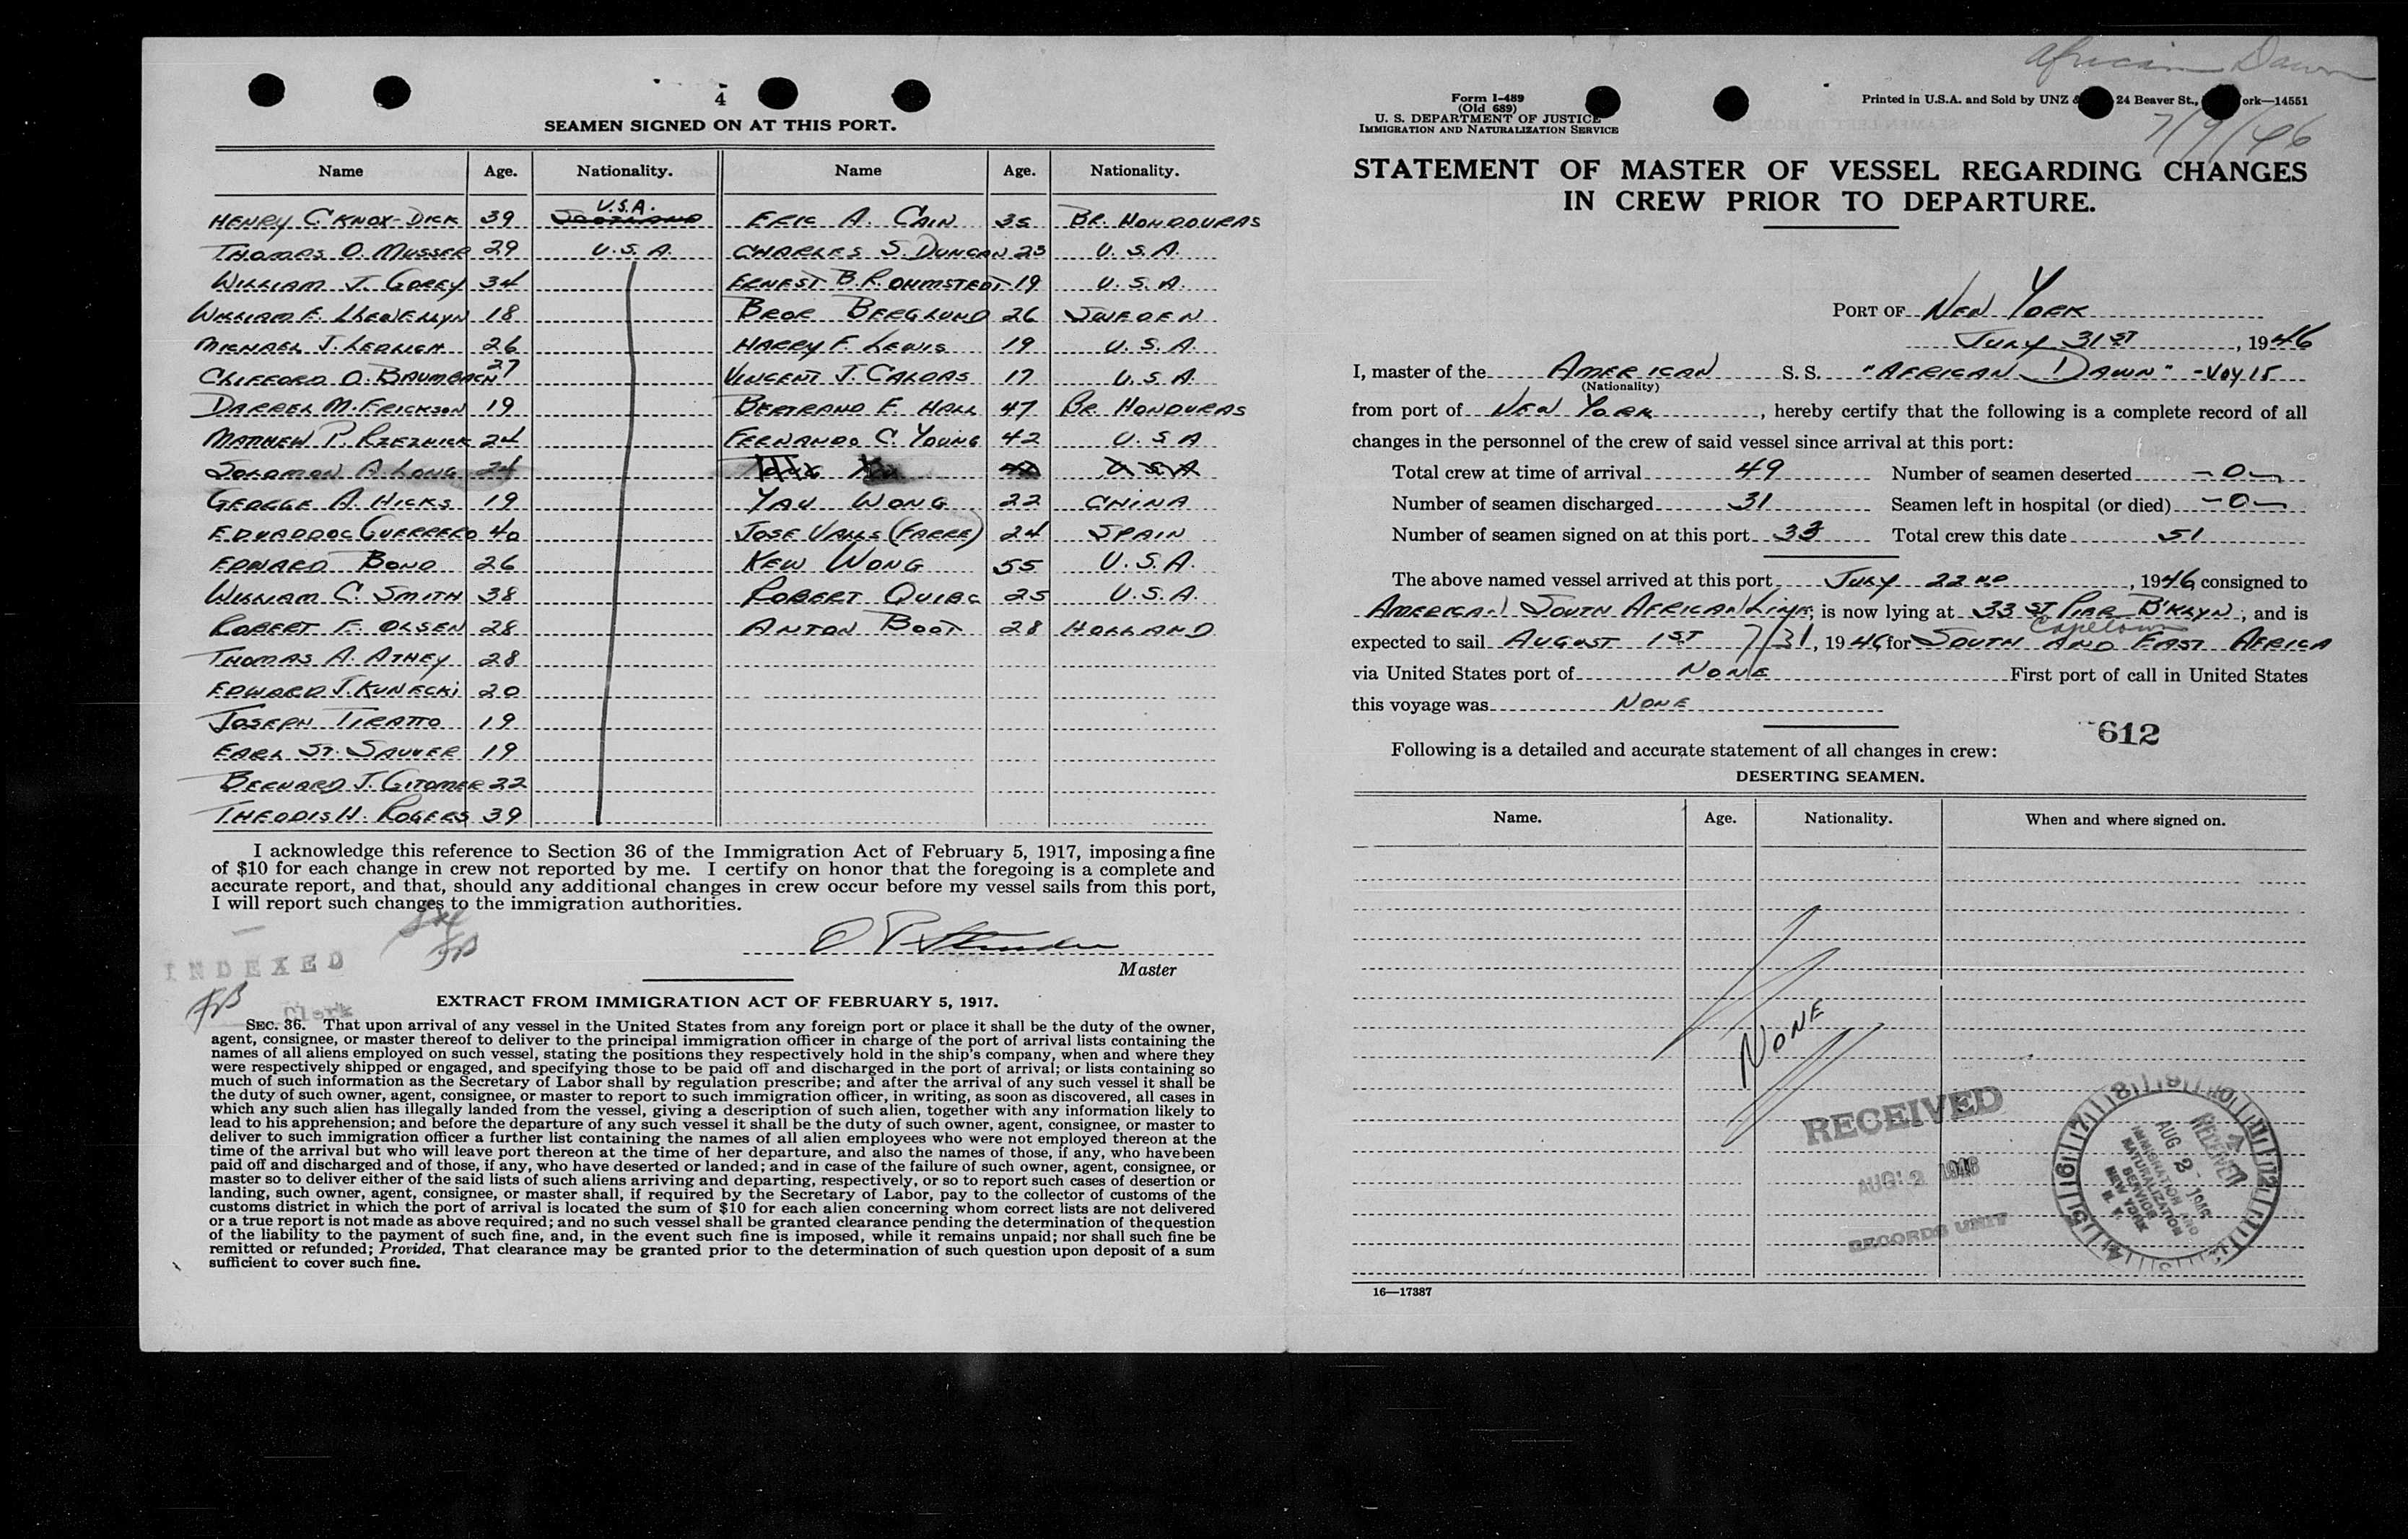 4
SEAMEN SIGNED ON AT THIS PORT.
Name Age. Nationality. Name Age. Nationality.
HENRY C. KNOX-DICK 39 U.S.A. ERIC A. CAIN 35 BR. HONDOURAS
THOMAS O. MUSSER 29 U.S.A. CHARLES S. DUNCAN 23 U.S.A.
WILLIAM J. GOREY 34 ERNEST B.R. OHMSTEDT 19 U.S.A.
WILLIAM E. LLEWELLYN 18 BROR BERGLUND 26 SWEDEN
MICHAEL J. LEDWICH 26 HARRY F. LEWIS 19 U.S.A.
CLIFFORD O. BAUMBACH 27 VINCENT J. CALDAS 17 U.S.A.
DARREL M. ERICKSON 19 BERTRAND E. HALL 47 BR. HONDURAS
MATHEW P. RZEZNICK 24 FERNANDO C. YOUNG 42 U.S.A
SOLOMON A. LONG 24 U.S.A
GEORGE A. HICKS 19 YAU WONG 22 CHINA
EDUARDO C GUERRERO 40 JOSE VALLS (FARRE) 24 SPAIN
EDWARD BOND 26 KEW WONG 55 U.S.A.
WILLIAM C. SMITH 38 ROBERT QUIBG 25 U.S.A.
ROBERT F. OLSEN 28 ANTON BOOT 28 HOLLAND
THOMAS A. ATHEY 28
EDWARD J. KUNECKI 20
JOSEPH TIRATTO 19
EARL ST. SAUVER 19
BERNARD J. GITOMER 22
THEODIS H. ROGERS 39
I acknowledge this reference to Section 36 of the Immigration Act of February 5, 1917, imposing a fine
of $10 for each change in crew not reported by me. I certify on honor that the foregoing is a complete and
accurate report, and that, should any additional changes in crew occur before my vessel sails from this port,
I will report such changes to the immigration authorities.
Master
INDEXED
Clerk
EXTRACT FROM IMMIGRATION ACT OF FEBRUARY 5, 1917.
SEC. 36. That upon arrival of any vessel in the United States from any foreign port or place it shall be the duty of the owner,
agent, consignee, or master thereof to deliver to the principal immigration officer in charge of the port of arrival lists containing the
names of all aliens employed on such vessel, stating the positions they respectively hold in the ship's company, when and where they
were respectively shipped or engaged, and specifying those to be paid off and discharged in the port of arrival; or lists containing so
much of such information as the Secretary of Labor shall by regulation prescribe; and after the arrival of any such vessel it shall be
the duty of such owner, agent, consignee, or master to report to such immigration officer, in writing, as soon as discovered, all cases in
which any such alien has illegally landed from the vessel, giving a description of such alien, together with any information likely to
lead to his apprehension; and before the departure of any such vessel it shall be the duty of such owner, agent, consignee, or master to
deliver to such immigration officer a further list containing the names of all alien employees who were not employed thereon at the
time of the arrival but who will leave port thereon at the time of her departure, and also the names of those, if any, who have been
paid off and discharged and of those, if any, who have deserted or landed; and in case of the failure of such owner, agent, consignee, or
master so to deliver either of the said lists of such aliens arriving and departing, respectively, or so to report such cases of desertion or
landing, such owner, agent, consignee, or master shall, if required by the Secretary of Labor, pay to the collector of customs of the
customs district in which the port of arrival is located the sum of $10 for each alien concerning whom correct lists are not delivered
or a true report is not made as above required; and no such vessel shall be granted clearance pending the determination of the question
of the liability to the payment of such fine, and, in the event such fine is imposed, while it remains unpaid; nor shall such fine be
remitted or refunded; Provided, That clearance may be granted prior to the determination of such question upon deposit of a sum
sufficient to cover such fine.
African Dawn
7/9/46
Form I-489
(Old 689)
U. S. DEPARTMENT OF JUSTICE
IMMIGRATION AND NATURALIZATION SERVICE
Printed in U.S.A. and Sold by UNZ & 24 Beaver St., ork—14551
STATEMENT OF MASTER OF VESSEL REGARDING CHANGES
IN CREW PRIOR TO DEPARTURE.
PORT OF NEW YORK
JULY 31ST, 1946
I, master of the AMERICAN S. S. "AFRICAN DAWN" - VOY 15
(Nationality)
from port of NEW YORK, hereby certify that the following is a complete record of all
changes in the personnel of the crew of said vessel since arrival at this port:
Total crew at time of arrival 49 Number of seamen deserted -0-
Number of seamen discharged 31 Seamen left in hospital (or died) -0-
Number of seamen signed on at this port 33 Total crew this date 51
The above named vessel arrived at this port JULY 22ND, 1946, consigned to
AMERICAN SOUTH AFRICAN LINE; is now lying at 33 ST PIER B'KLYN; and is
Capetown
expected to sail AUGUST 1ST 7/31, 1946 for SOUTH AND EAST AFRICA
via United States port of NONE First port of call in United States
this voyage was NONE
612
Following is a detailed and accurate statement of all changes in crew:
DESERTING SEAMEN.
Name. Age. Nationality. When and where signed on.
NONE
RECEIVED
AUG 2 1946
RECORDS UNIT
RECEIVED
AUG 2 - 1946
IMMIGRATION AND
NATURALIZATION
SERVICE
NEW YORK
N. Y.
16—17387